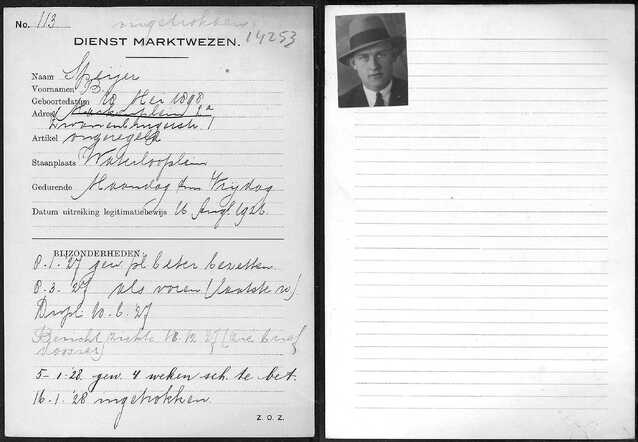 No. 113
ingetrokken
14253
DIENST MARKTWEZEN.
Naam Speijer
Voornamen B.
Geboortedatum 10 Mei 1898
Adres
1
Artikel ongeregeld
Staanplaats Waterlooplein
Gedurende Maandag t/m Vrijdag
Datum uitreiking legitimatiebewijs 16 Aug. 1926.
BIJZONDERHEDEN:
8-1-'27 gew. pl. beter bezetten
8-3-'27 als voren (laatste
Dupl. 10-6-'27
5-1-'28. gew. 4 weken sch. te bet.
16-1-'28 ingetrokken.
Z.O.Z.